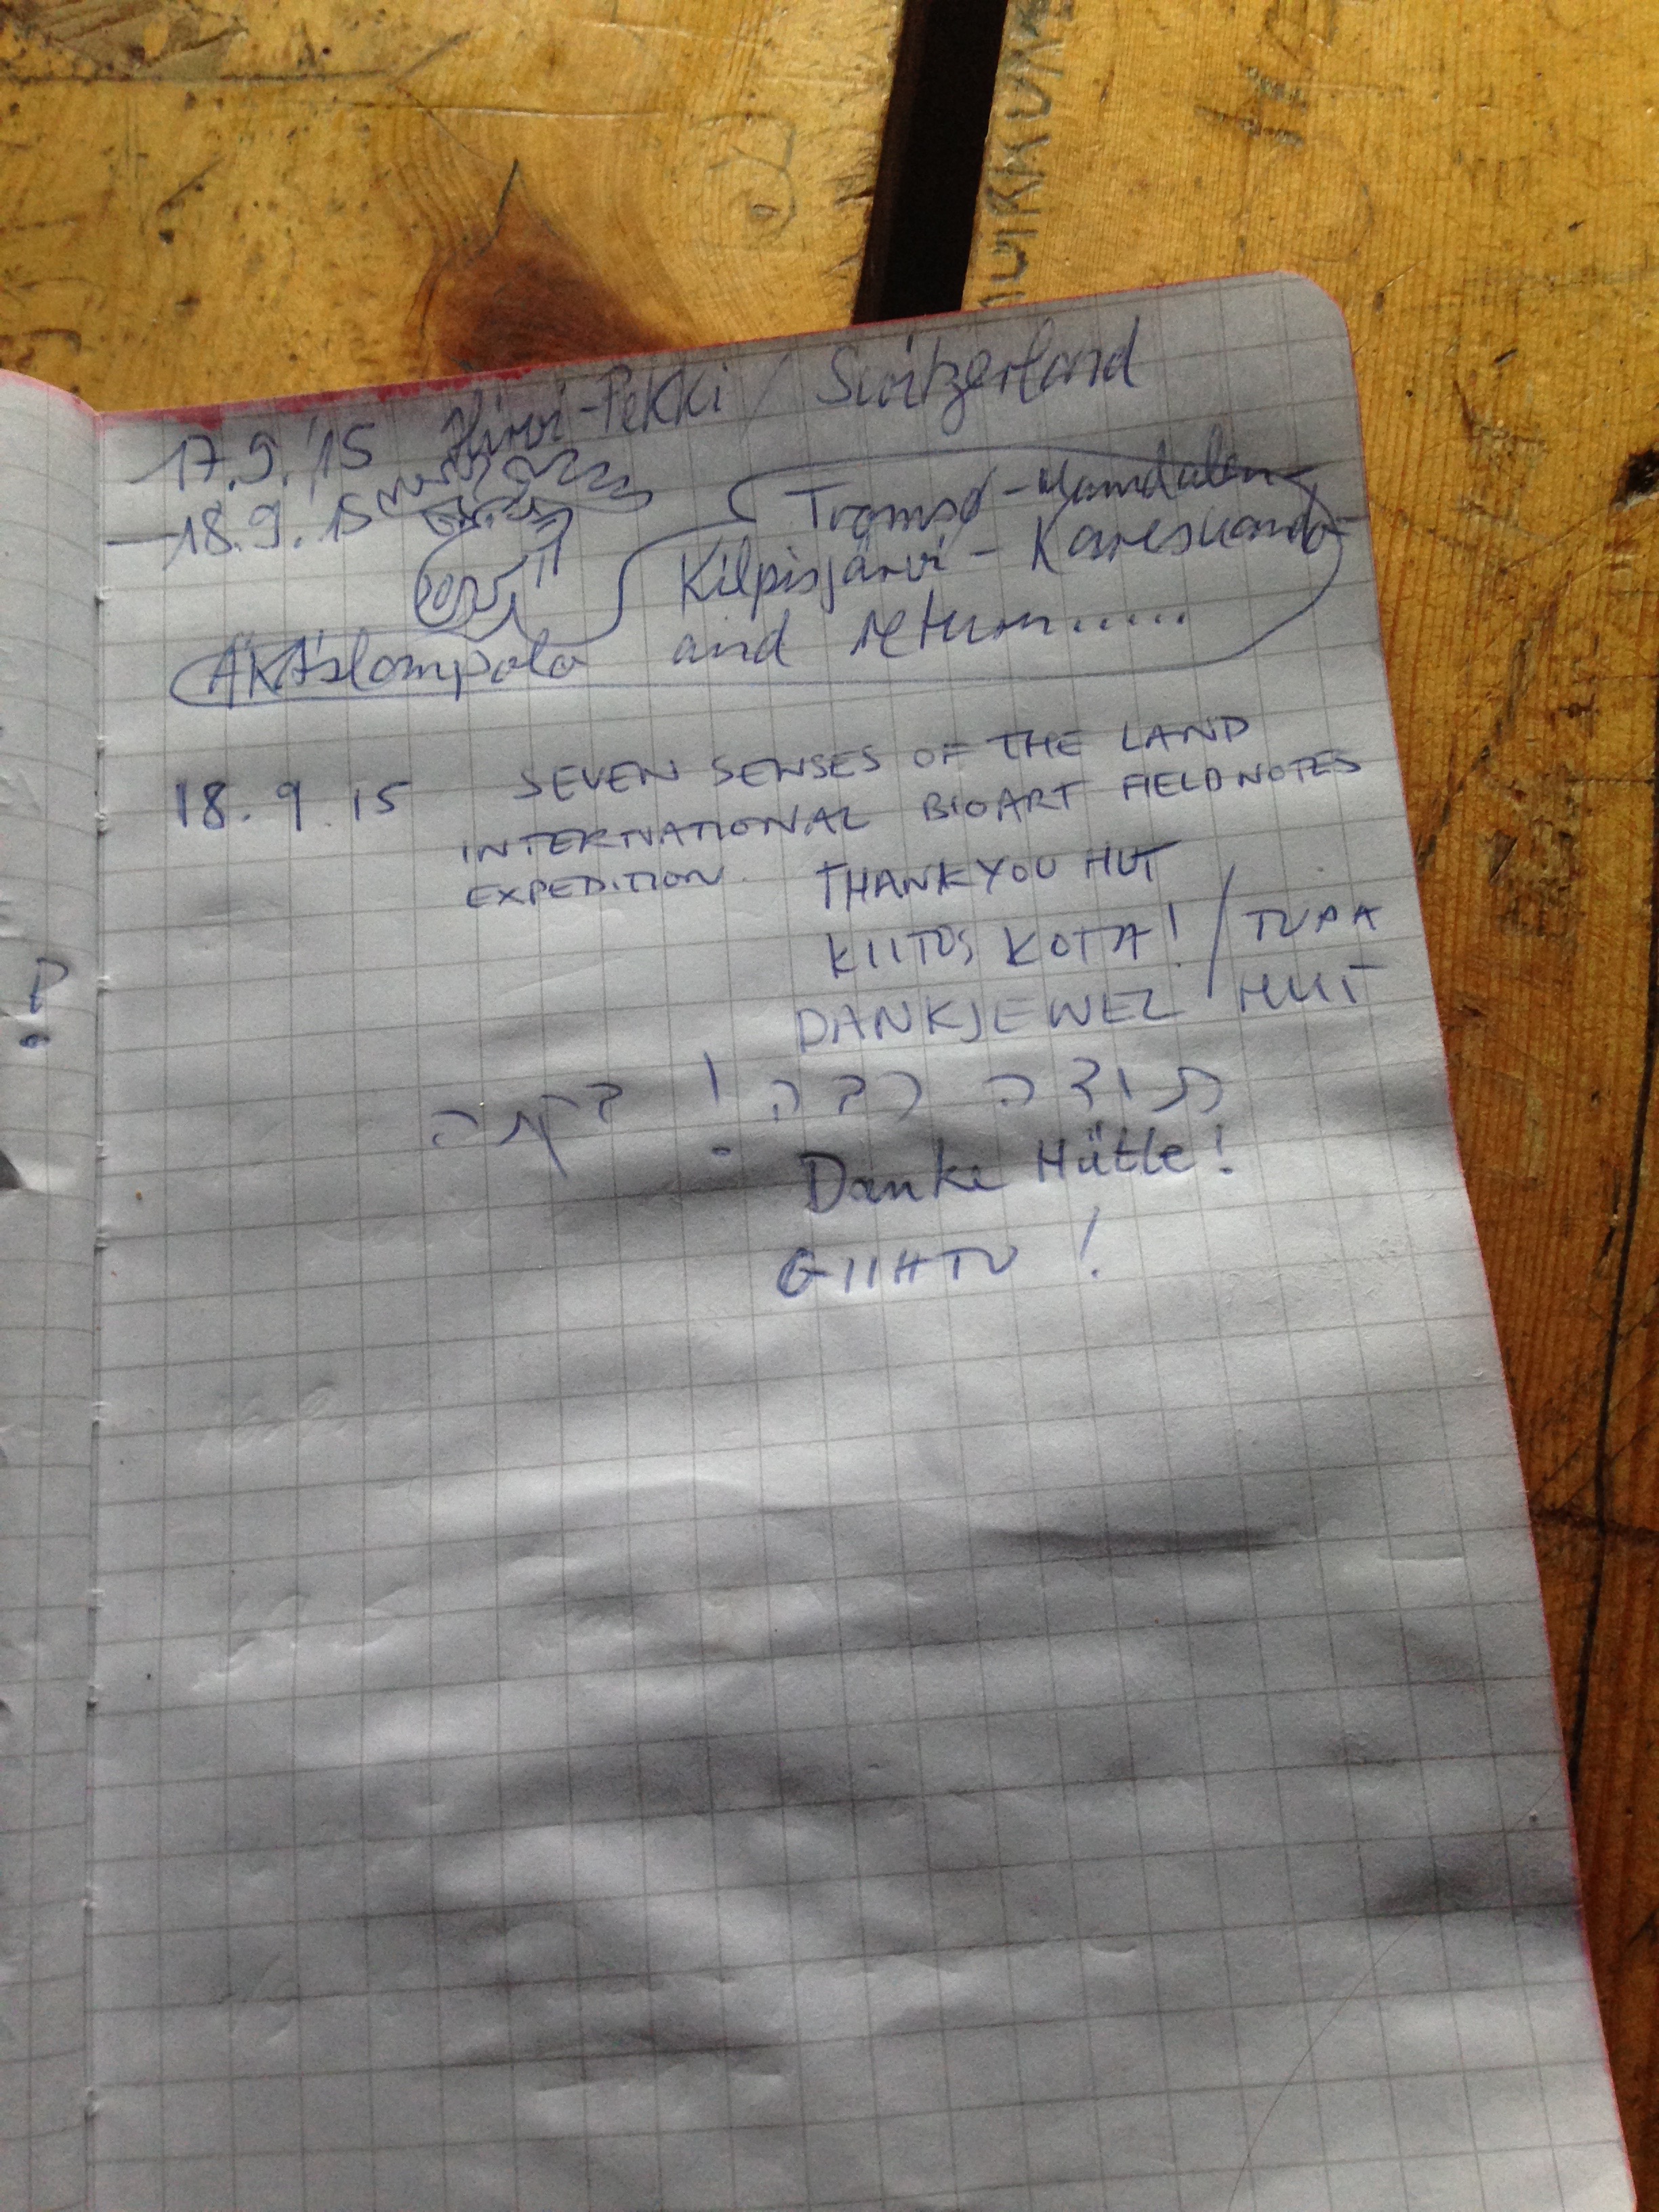 17.9.'15 Hirvi-Pekki / Switzerland
-18.9.15
Tromsø - Mamdalen
Kilpisjärvi - Karesuando
ÄKÄslompolo and return.....
18.9.15 SEVEN SENSES OF THE LAND
INTERNATIONAL BIOART FIELDNOTES
EXPEDITION. THANKYOU HUT
KIITOS KOTA! / TUPA
DANKJEWEL HUT
תודה רבה! בקתה
Danke Hütte!
GIIHTU!